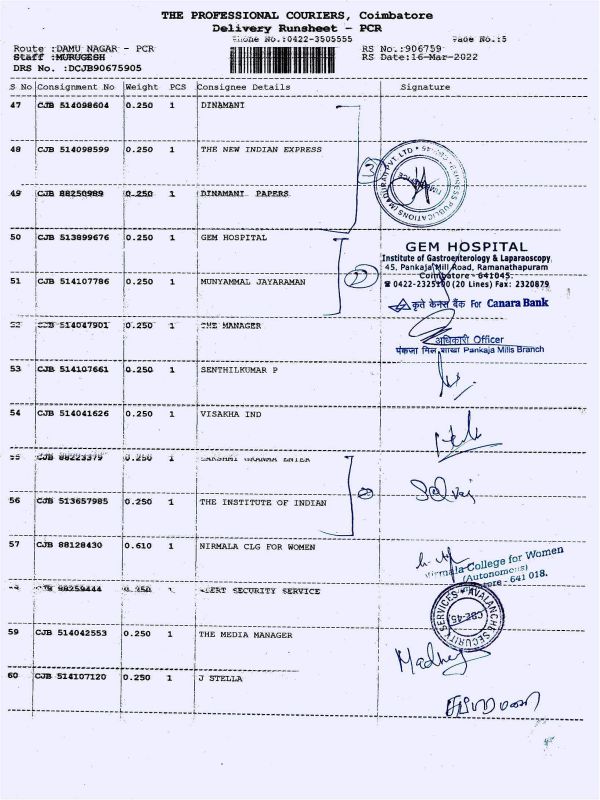 THE PROFESSIONAL COURIERS, Coimbatore
Delivery Runsheet - PCR
Phone No.:0422-3505555 Page No.:5
Route :DAMU NAGAR - PCR RS No.:906759
Staff :MURUGESH RS Date:16-Mar-2022
DRS No. :DCJB90675905
S No Consignment No Weight PCS Consignee Details Signature
47 CJB 514098604 0.250 1 DINAMANI
48 CJB 514098599 0.250 1 THE NEW INDIAN EXPRESS
49 CJB 88250989 0.250 1 DINAMANI PAPERS
50 CJB 513899676 0.250 1 GEM HOSPITAL
GEM HOSPITAL
Institute of Gastroenterology & Laparaoscopy
45, Pankaja Mill Road, Ramanathapuram
Coimbatore - 641045.
51 CJB 514107786 0.250 1 MUNYAMMAL JAYARAMAN
☎ 0422-2325100 (20 Lines) Fax: 2320879
कृते केनरा बैंक For Canara Bank
52 CJB 514047901 0.250 1 THE MANAGER
अधिकारी Officer
पंकजा मिल शाखा Pankaja Mills Branch
53 CJB 514107661 0.250 1 SENTHILKUMAR P
54 CJB 514041626 0.250 1 VISAKHA IND
55 CJB 88223379 0.250 1
56 CJB 513657985 0.250 1 THE INSTITUTE OF INDIAN
57 CJB 88128430 0.610 1 NIRMALA CLG FOR WOMEN
Nirmala College for Women
(Autonomous)
641 018.
CJB 88259444 0.250 1 ALERT SECURITY SERVICE
AVALANCHE SECURITY SERVICES
CBE-45
59 CJB 514042553 0.250 1 THE MEDIA MANAGER
60 CJB 514107120 0.250 1 J STELLA